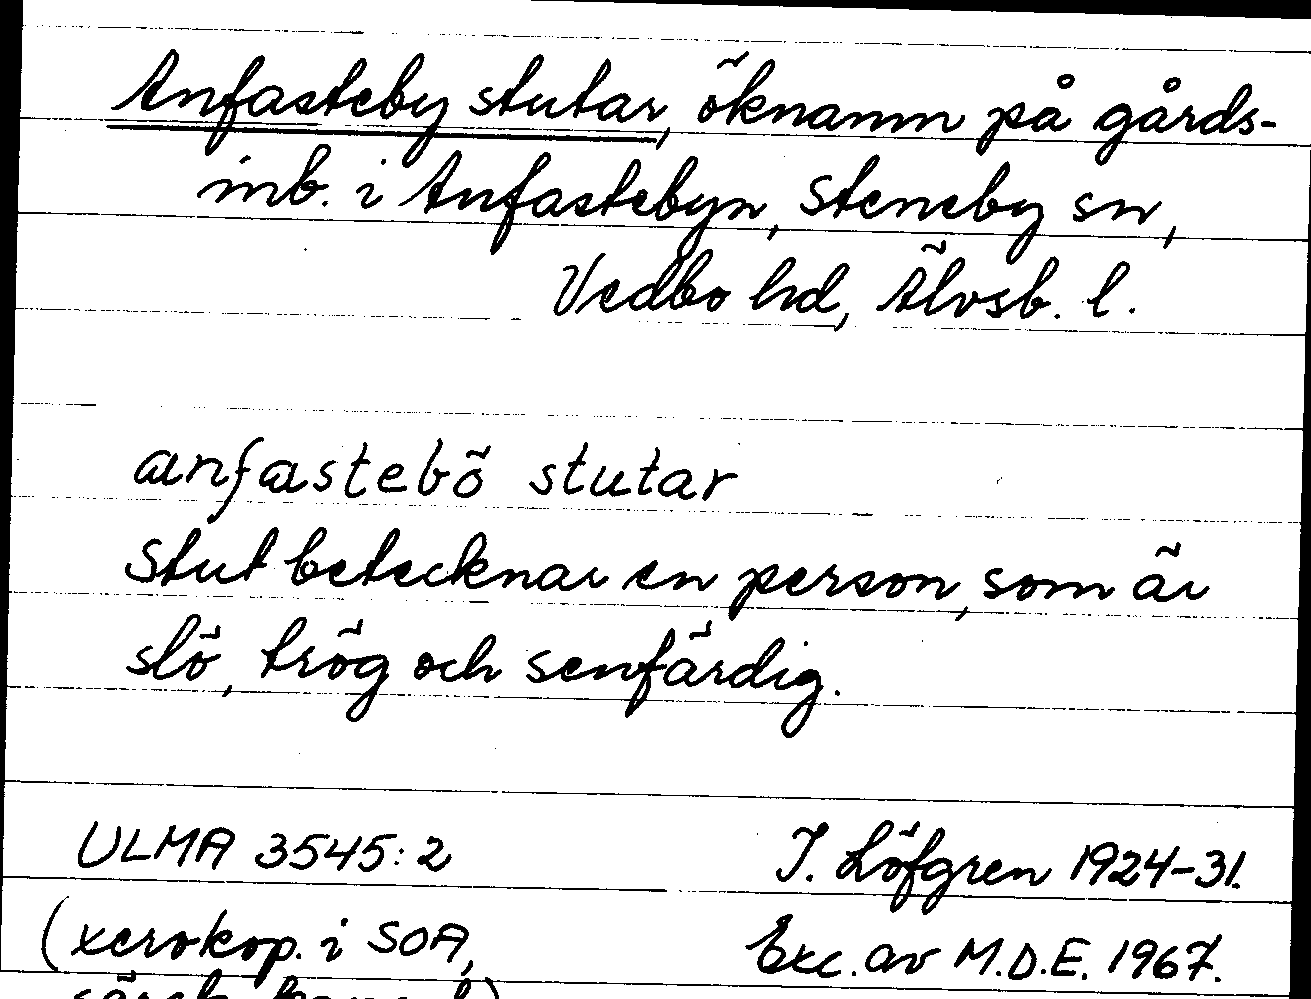 Anfasteby stutar, öknamn på gårds-
inb. i Anfastebyn, Steneby sn,
Vedbo hd, Älvsb. l.
anfastebö stutar
Stut betecknar en person, som är
slö, trög och senfärdig.
ULMA 3545:2
I. Löfgren 1924-31.
(xerokop. i SOA,
Exc. av M.D.E. 1967.